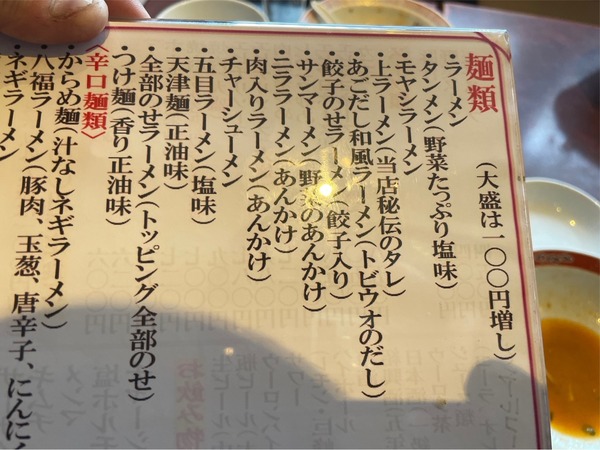 麺類
(大盛は一〇〇円増し)
・ラーメン
・タンメン(野菜たっぷり塩味)
・モヤシラーメン
・上ラーメン(当店秘伝のタレ)
・あごだし和風ラーメン(トビウオのだし)
・餃子のせラーメン(餃子入り)
・サンマーメン(野菜のあんかけ)
・ニララーメン(あんかけ)
・肉入りラーメン(あんかけ)
・チャーシューメン
・五目ラーメン(塩味)
・天津麺(正油味)
・全部のせラーメン(トッピング全部のせ)
・つけ麺(香り正油味)
〈辛口麺類〉
・からめ麺(汁なしネギラーメン)
・八福ラーメン(豚肉、玉葱、唐辛子、にんにく
・ネギラーメン
お飲み物